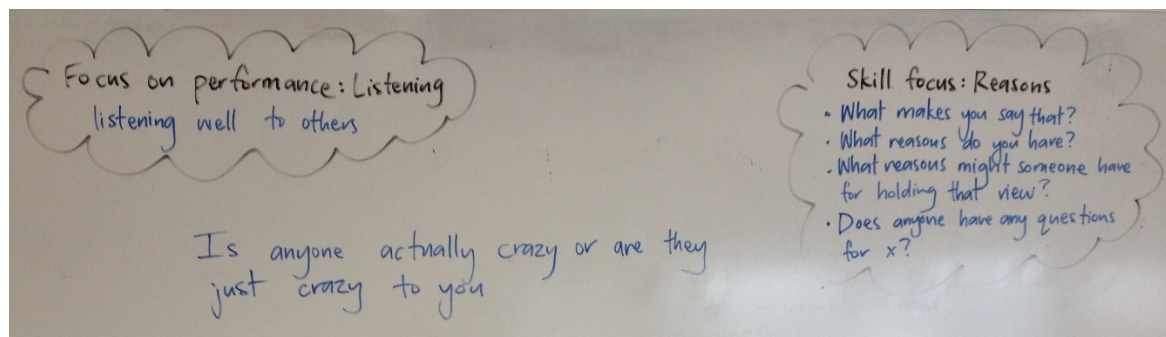 Focus on performance: Listening
listening well to others
Skill focus: Reasons
• What makes you say that?
• What reasons do you have?
• What reasons might someone have
for holding that view?
• Does anyone have any questions
for x?
Is anyone actually crazy or are they
just crazy to you